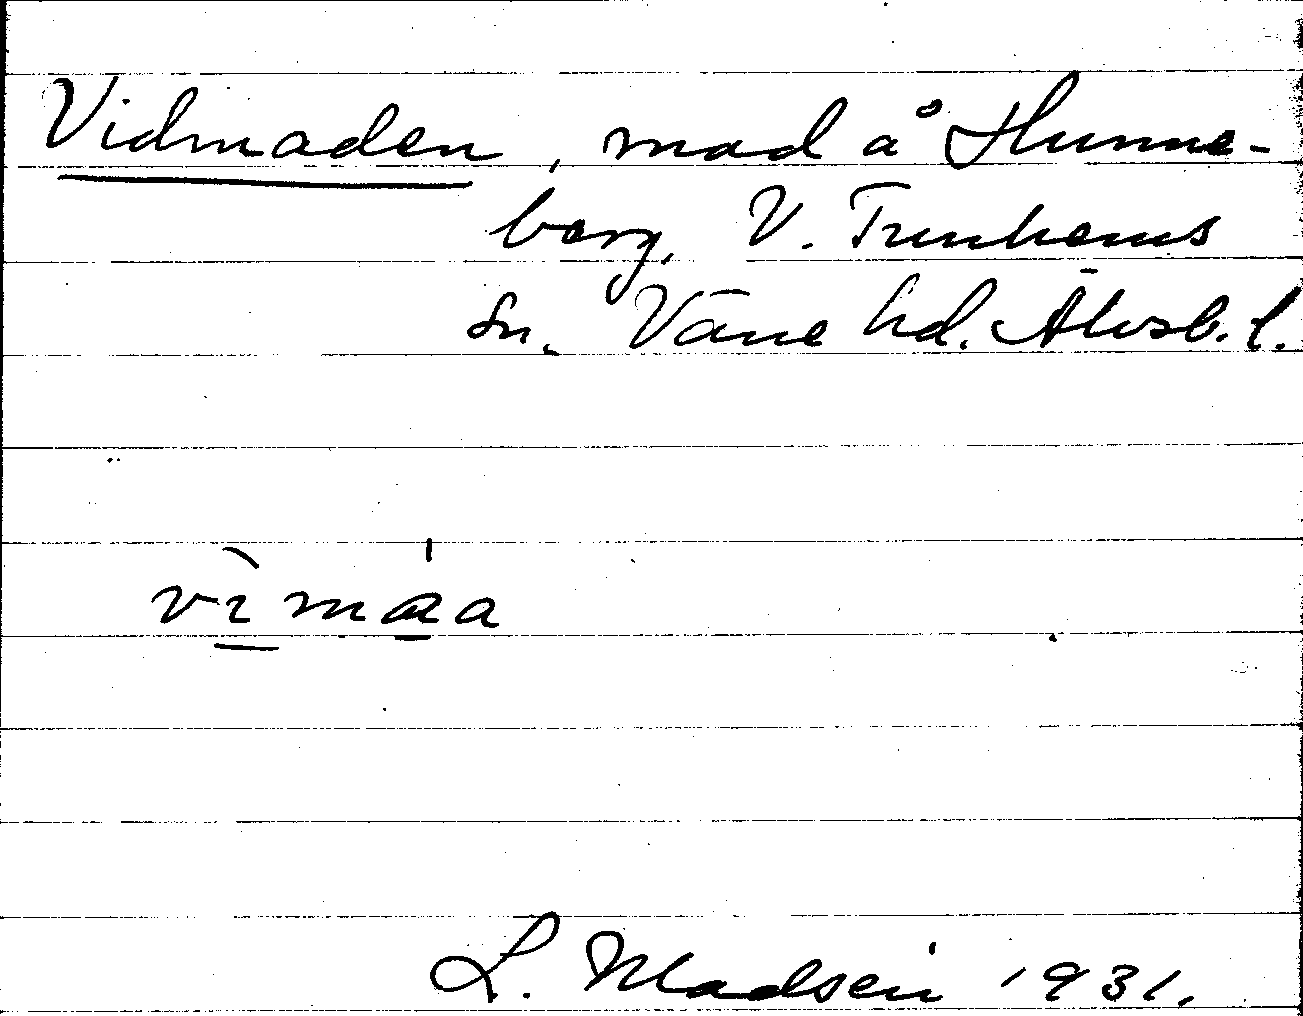 Vidmaden, mad å Hunne-
berg, V. Tunhems
sn. Väne hd. Älvsb. l.
vìmáa
L. Madsén 1931.